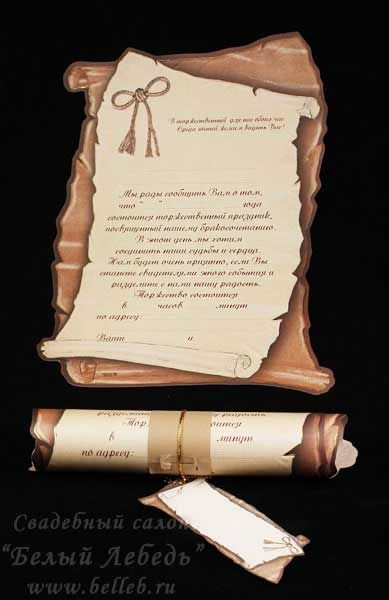 В торжественный для нас обоих час
Среди гостей желаем видеть Вас!
Мы рады сообщить Вам о том,
что " " года
состоится торжественный праздник,
посвященный нашему бракосочетанию.
В этот день мы хотим
соединить наши судьбы и сердца.
Нам будет очень приятно, если Вы
станете свидетелями этого события и
разделите с нами нашу радость.
Торжество состоится
в часов минут
по адресу:
Ваши и.
разделите нашу радость
Тор оится
в минут
по адресу:
Свадебный салон
"Белый Лебедь"
www.belleb.ru